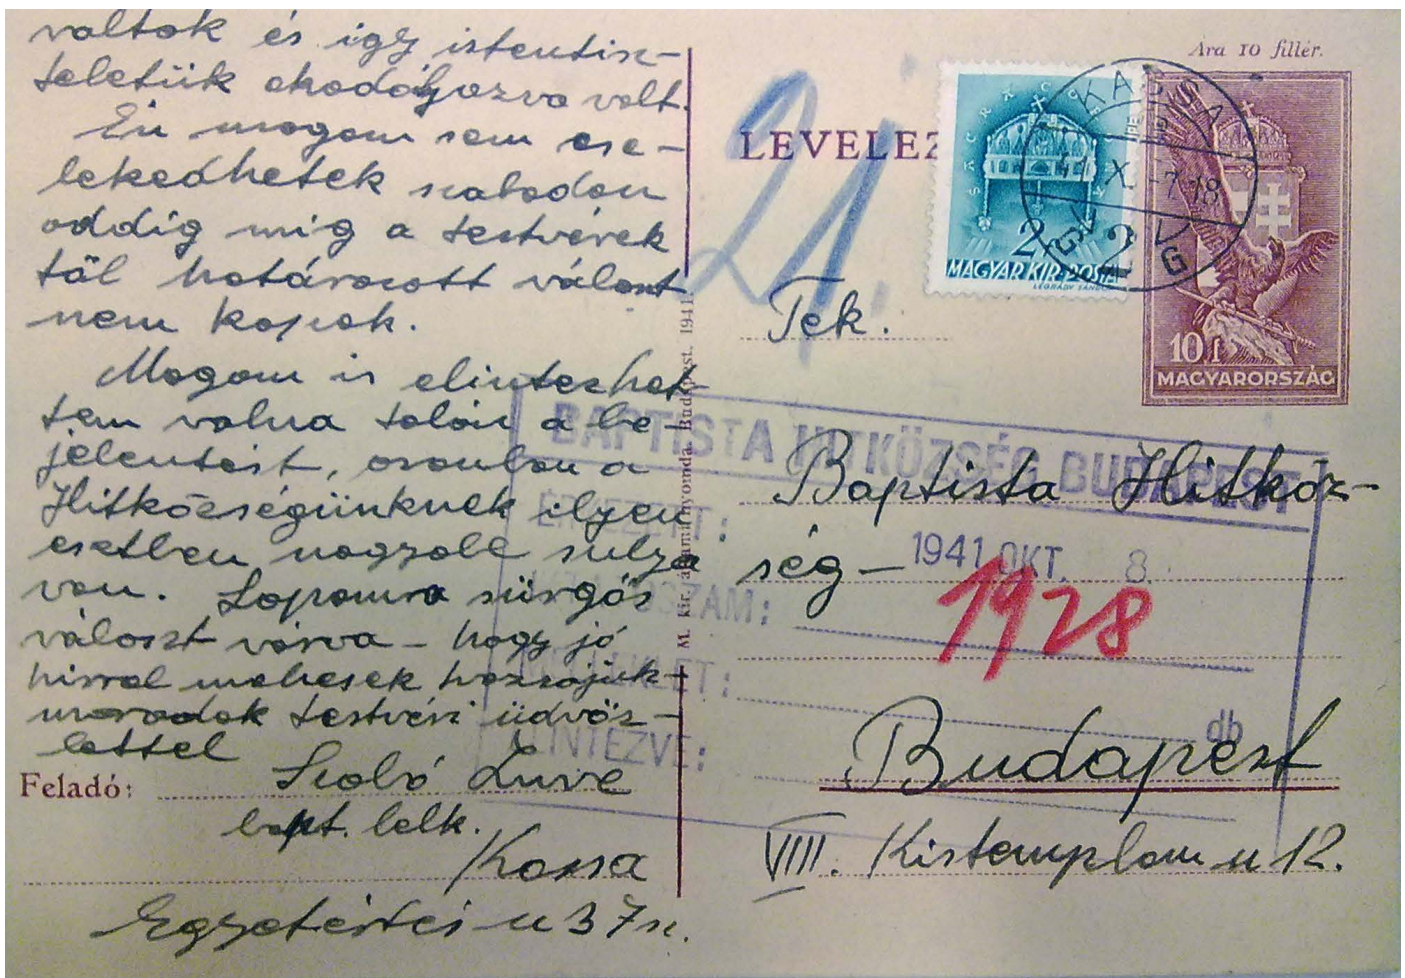 voltok és igy istentisz-
teletük akadályozva volt.
Én magam sem cse-
lekedhetek szabadon
addig mig a testvérek
től határozott választ
nem kapok.
Magam is elintézhet-
tem volna talán a be-
jelentést, azonban a
Hitközségünknek ilyen
esetben nagyobb sulya
van. Lapomra sürgős
választ várva – hogy jó
hirrel mehessek hozzájuk –
maradok testvéri üdvöz-
lettel
Feladó: Szabó Imre
bapt. lelk.
Kassa
Egyetértés u 37 sz.
M. kir. államnyomda. Budapest. 1941.
Ára 10 fillér.
LEVELEZ
21.
SACRA CORONA
2
MAGYAR KIR. POSTA
LÉGRÁDY SÁNDOR
KASSA
41 X. -7. 18
2
10 f
MAGYARORSZÁG
Tek.
BAPTISTA HITKÖZSÉG BUDAPEST
Baptista Hitköz-
ÉRKEZETT:
1941 OKT. 8.
ség –
1928
MELLÉKLET: db
ELINTÉZVE:
Budapest
VIII. Kistemplom u 12.